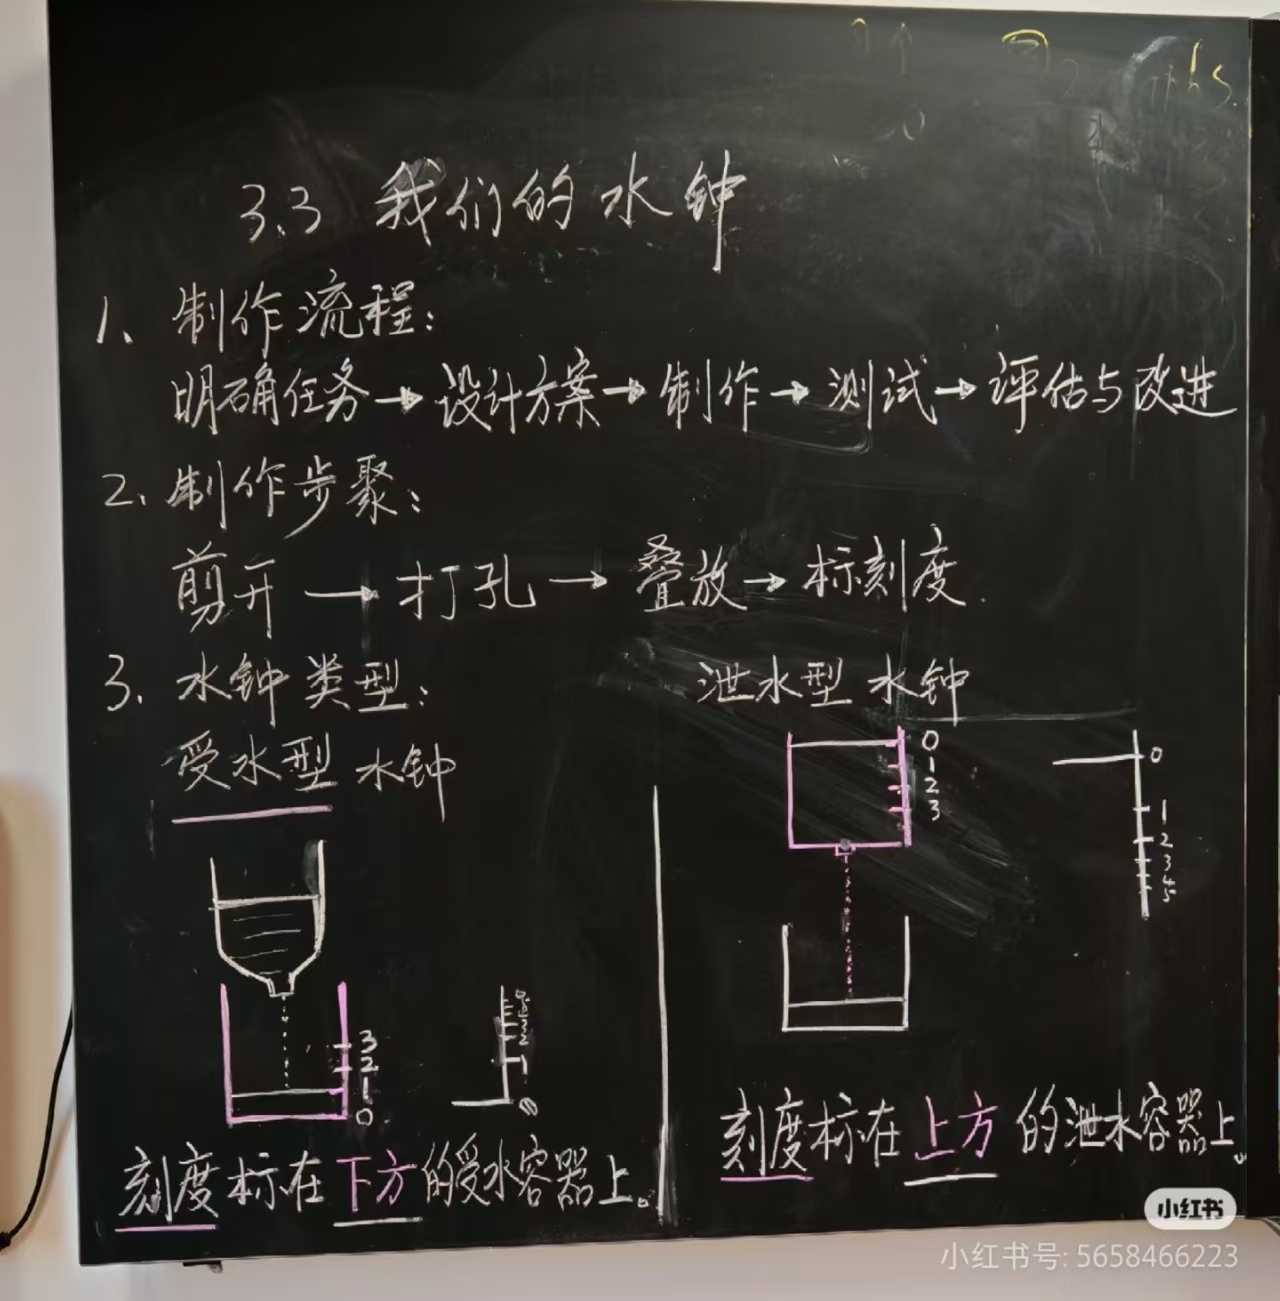 3.3 我们的水钟
1、制作流程：
明确任务→设计方案→制作→测试→评估与改进
2、制作步聚：
剪开→打孔→叠放→标刻度
3、水钟类型：
受水型水钟
3
2
1
0
2
1
0
刻度标在下方的受水容器上。
泄水型水钟
0
1
2
3
0
1
2
3
4
5
刻度标在上方的泄水容器上。
小红书
小红书号: 5658466223